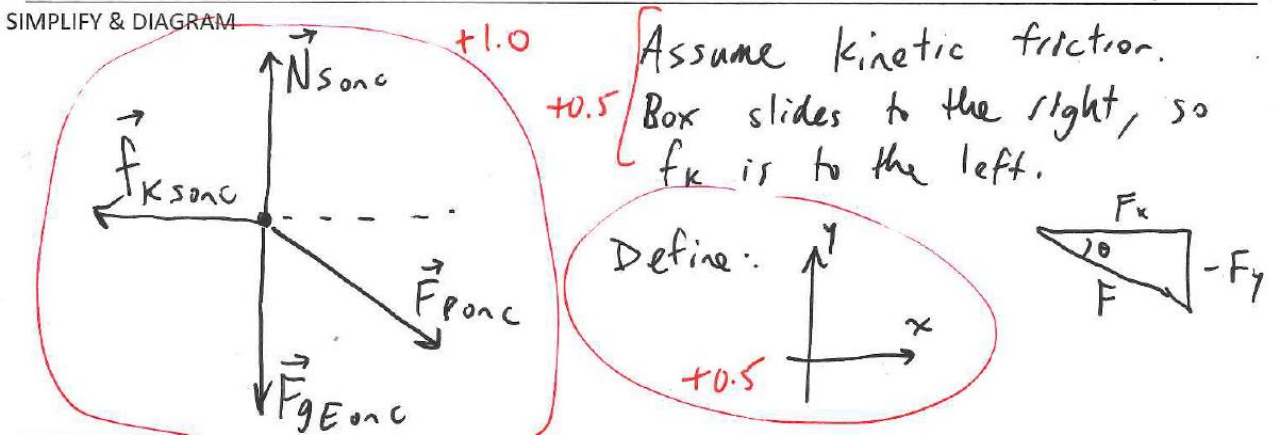 SIMPLIFY & DIAGRAM
+1.0
N S on c
f K S on c
F P on c
F g E on c
+0.5
Assume kinetic friction.
Box slides to the right, so
fK is to the left.
Define:
y
x
+0.5
Fx
θ
-Fy
F